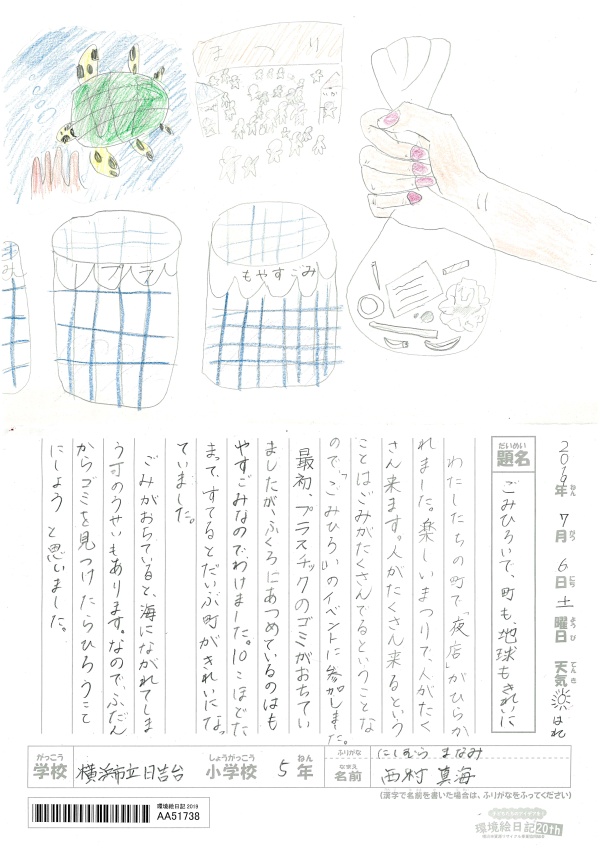 まつり
いか
あみ
プラ
もやすごみ
2019年 7月 6日 土曜日 天気 はれ
ねん がつ にち ようび てんき
だいめい
題名
ごみひろいで、町も、地球もきれいに
わたしたちの町で「夜店」がひらか
れました。楽しいまつりで、人がたく
さん来ます。人がたくさん来るという
ことはごみがたくさんでるということな
ので、「ごみひろい」のイベントに参加しました。
最初、プラスチックのゴミがおちてい
ましたが、ふくろにあつめているのはも
やすごみなのでわけました。10こほどた
まて、すてるとだいぶ町がきれいになっ
ていました。
ごみがおちていると、海にながれてしま
う寸のうせいもあります。なので、ふだん
からゴミを見つけたらひろうこと
にしよう と思いました。
がっこう
学校
横浜市立日吉台
しょうがっこう
小学校
5
ねん
年
ふりがな
にしむら まなみ
なまえ
名前
西村 真海
(漢字で名前を書いた場合は、ふりがなをふってください)
環境絵日記 2019
AA51738
環境絵日記 20th